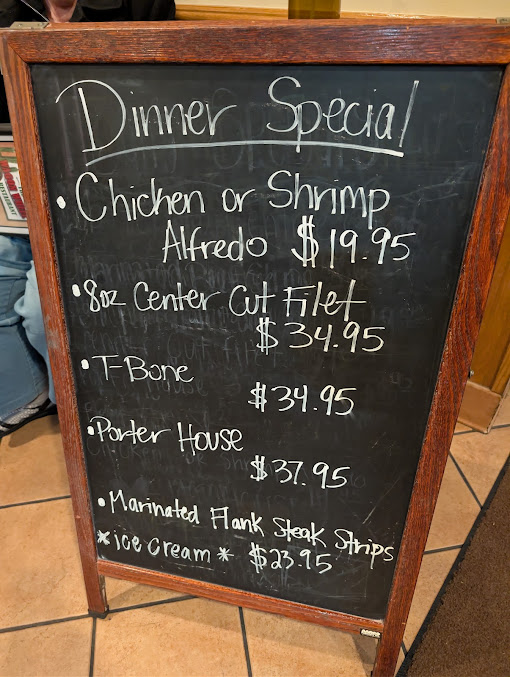 Dinner Special
• Chicken or Shrimp
Alfredo $19.95
• 8oz Center Cut Filet
$34.95
• T-Bone
$34.95
• Porter House
$37.95
• Marinated Flank Steak Strips
*ice cream* $23.95